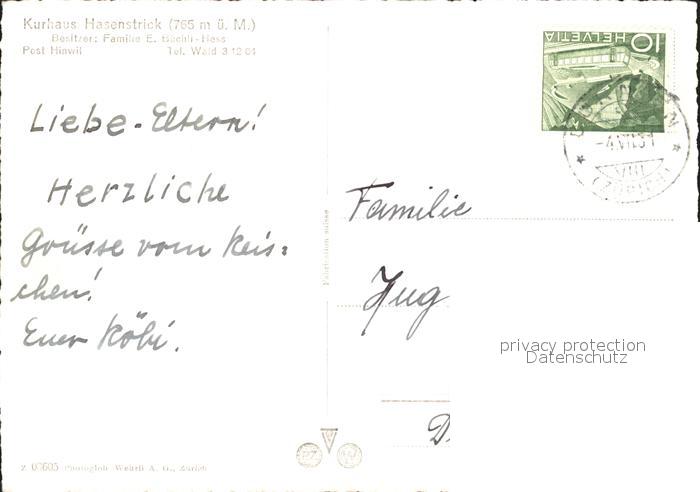 Kurhaus Hasenstrick (765 m ü. M.)
Besitzer: Familie E. Büchli-Hess
Post Hinwil Tel. Wald 3 12 01
HELVETIA 10
-4.VII.51
VIII
(ZÜRICH)
Liebe-Eltern!
Herzliche
Grüsse vom Reis=
chen!
Euer Köbi.
Familie
Hug
D.
Fabrication suisse
privacy protection
Datenschutz
Photoglob-Wehrli A. G., Zürich